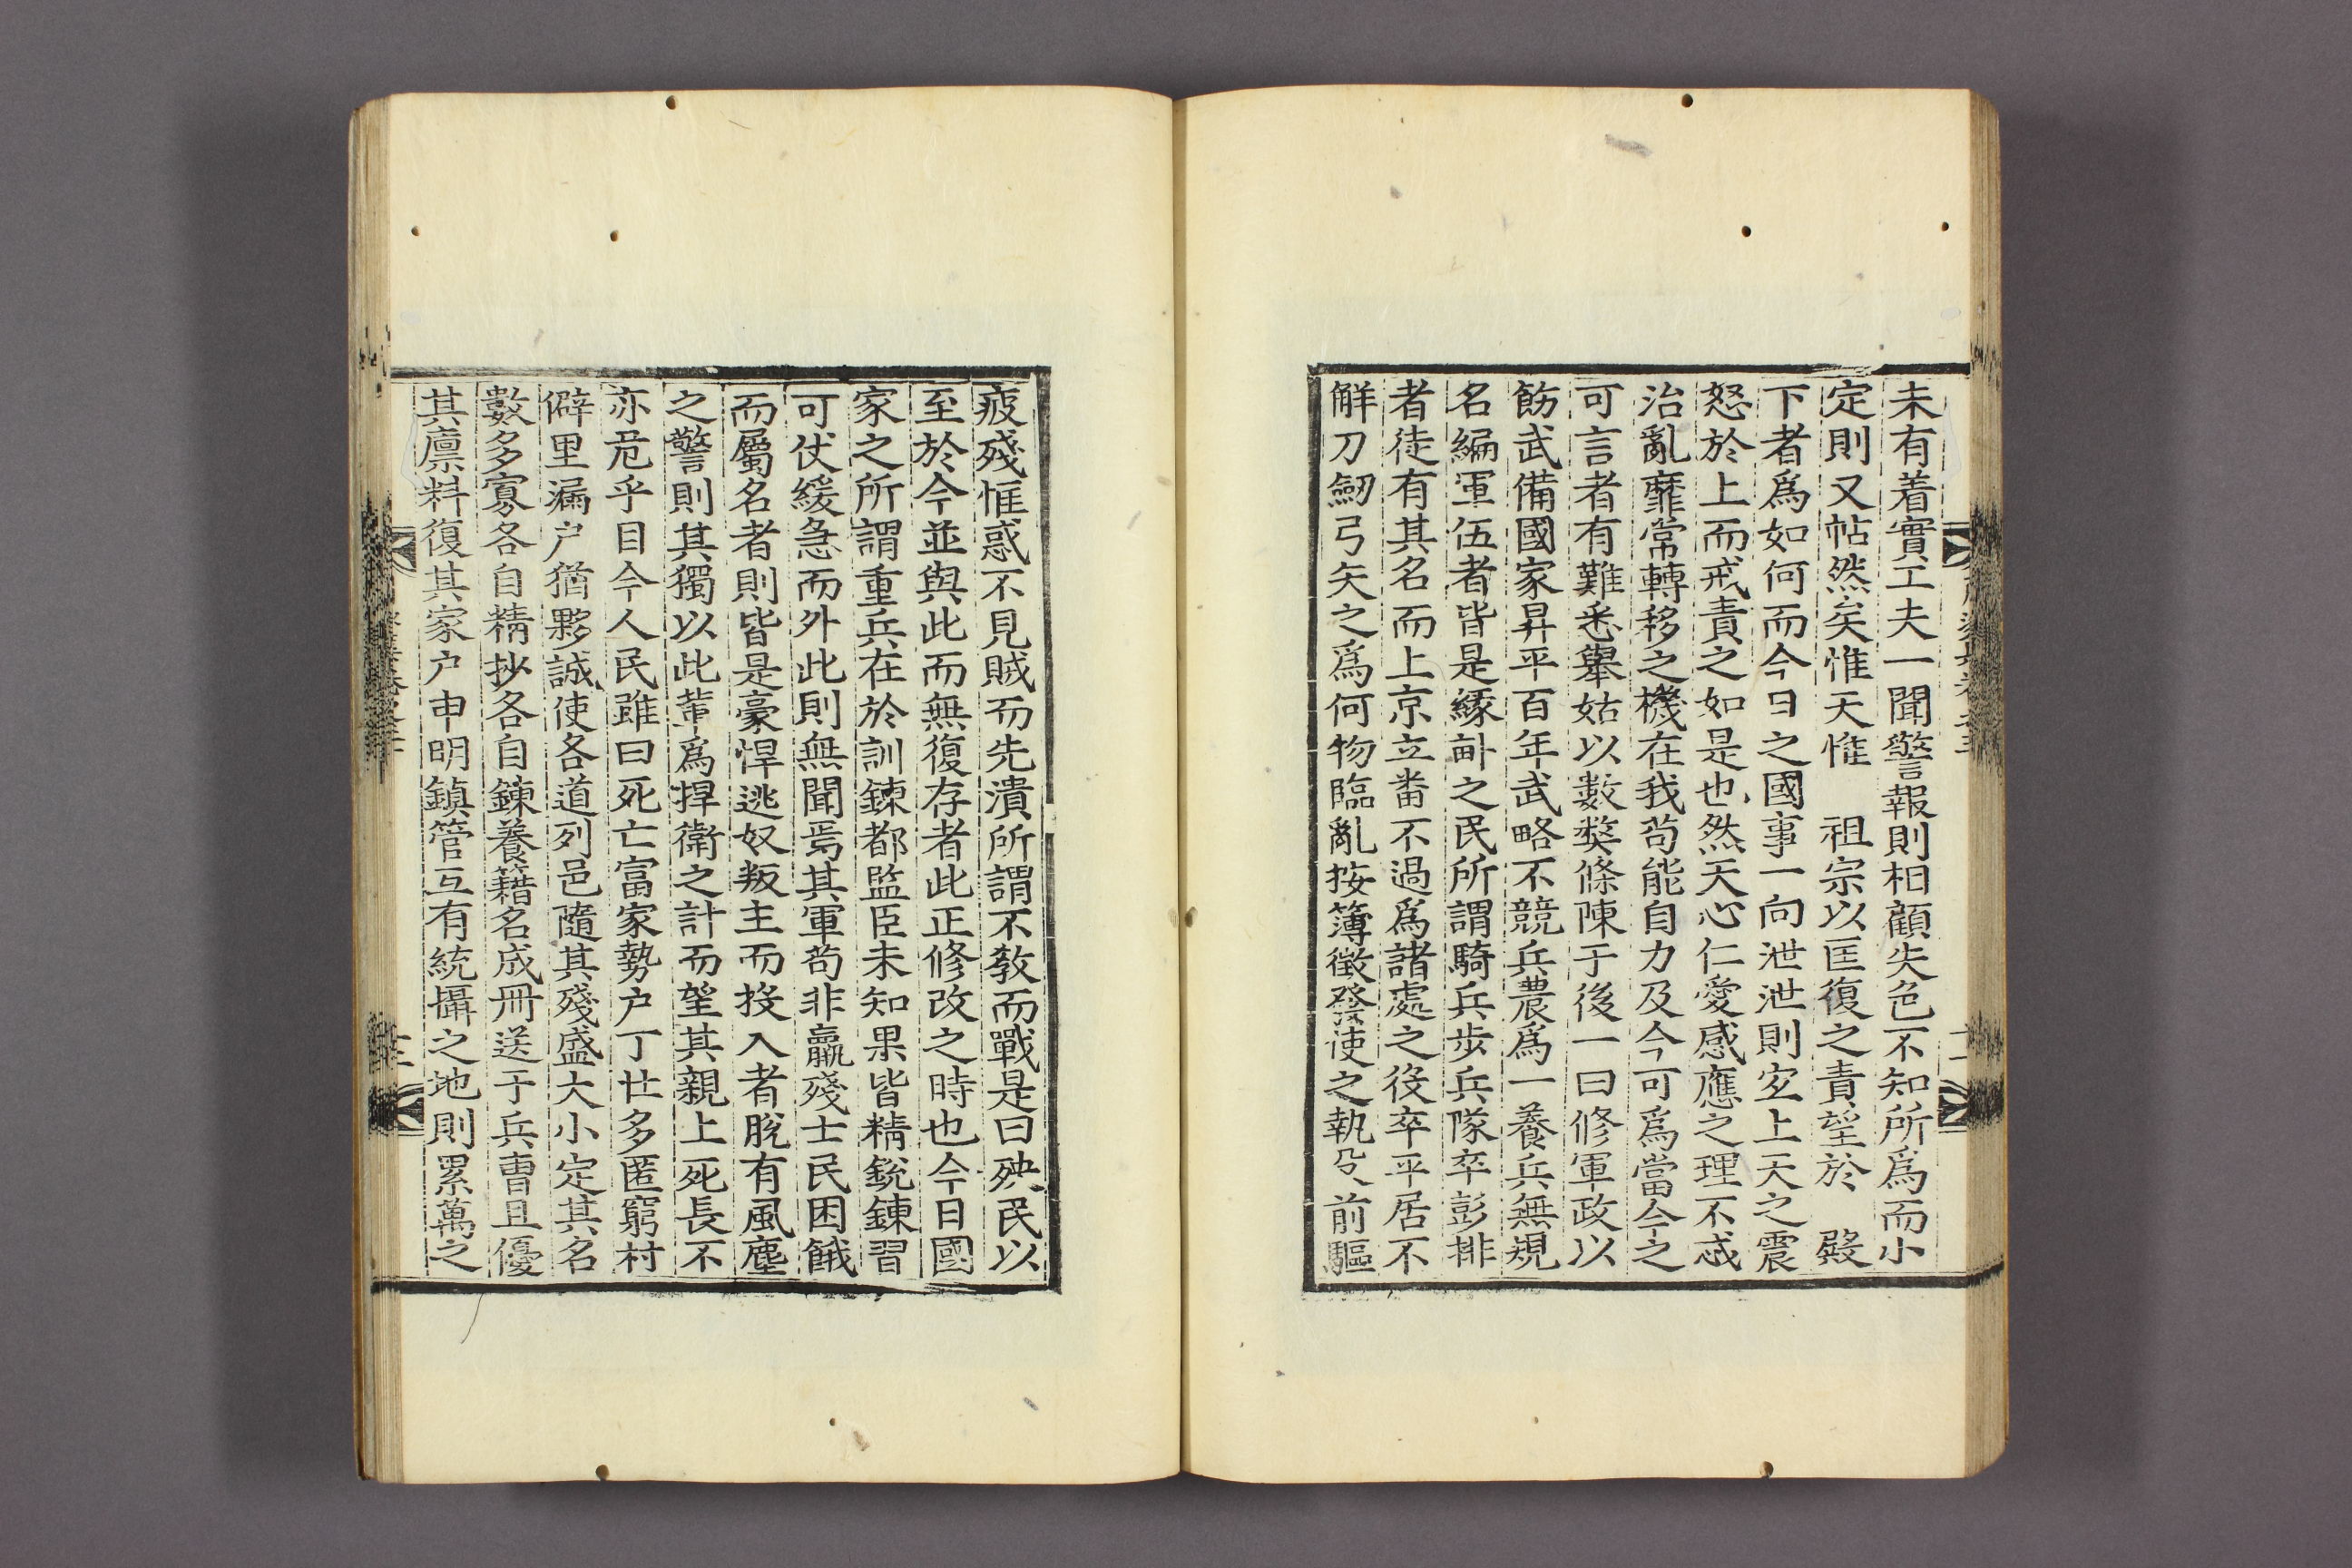 未有着實工夫一聞警報則相顧失色不知所爲而小
定則又帖然矣惟天惟　祖宗以匡復之責望於　殿
下者爲如何而今日之國事一向泄泄則宜上天之震
怒於上而戒責之如是也然天心仁愛感應之理不忒
治亂靡常轉移之機在我苟能自力及今可爲當今之
可言者有難悉舉姑以數獘條陳于後一曰修軍政以
飭武備國家昇平百年武略不競兵農爲一養兵無規
名編軍伍者皆是緣畒之民所謂騎兵步兵隊卒彭排
者徒有其名而上京立番不過爲諸處之役卒平居不
觧刀劒弓矢之爲何物臨亂按簿徵發使之執殳前驅
疲殘惟惑不見賊而先潰所謂不敎而戰是曰殃民以
至於今並與此而無復存者此正修改之時也今日國
家之所謂重兵在於訓鍊都監臣未知果皆精銳鍊習
可仗緩急而外此則無聞焉其軍苟非羸殘士民困餓
而屬名者則皆是豪悍逃奴叛主而投入者脫有風塵
之警則其獨以此輩爲捍衛之計而望其親上死長不
亦危乎目今人民雖曰死亡富家勢户丁壯多匿窮村
僻里漏户猶夥誠使各道列邑隨其殘盛大小定其名
數多寡各自精抄各自鍊養籍名成冊送于兵曺且優
其廩料復其家户申明鎮管互有統攝之地則累萬之